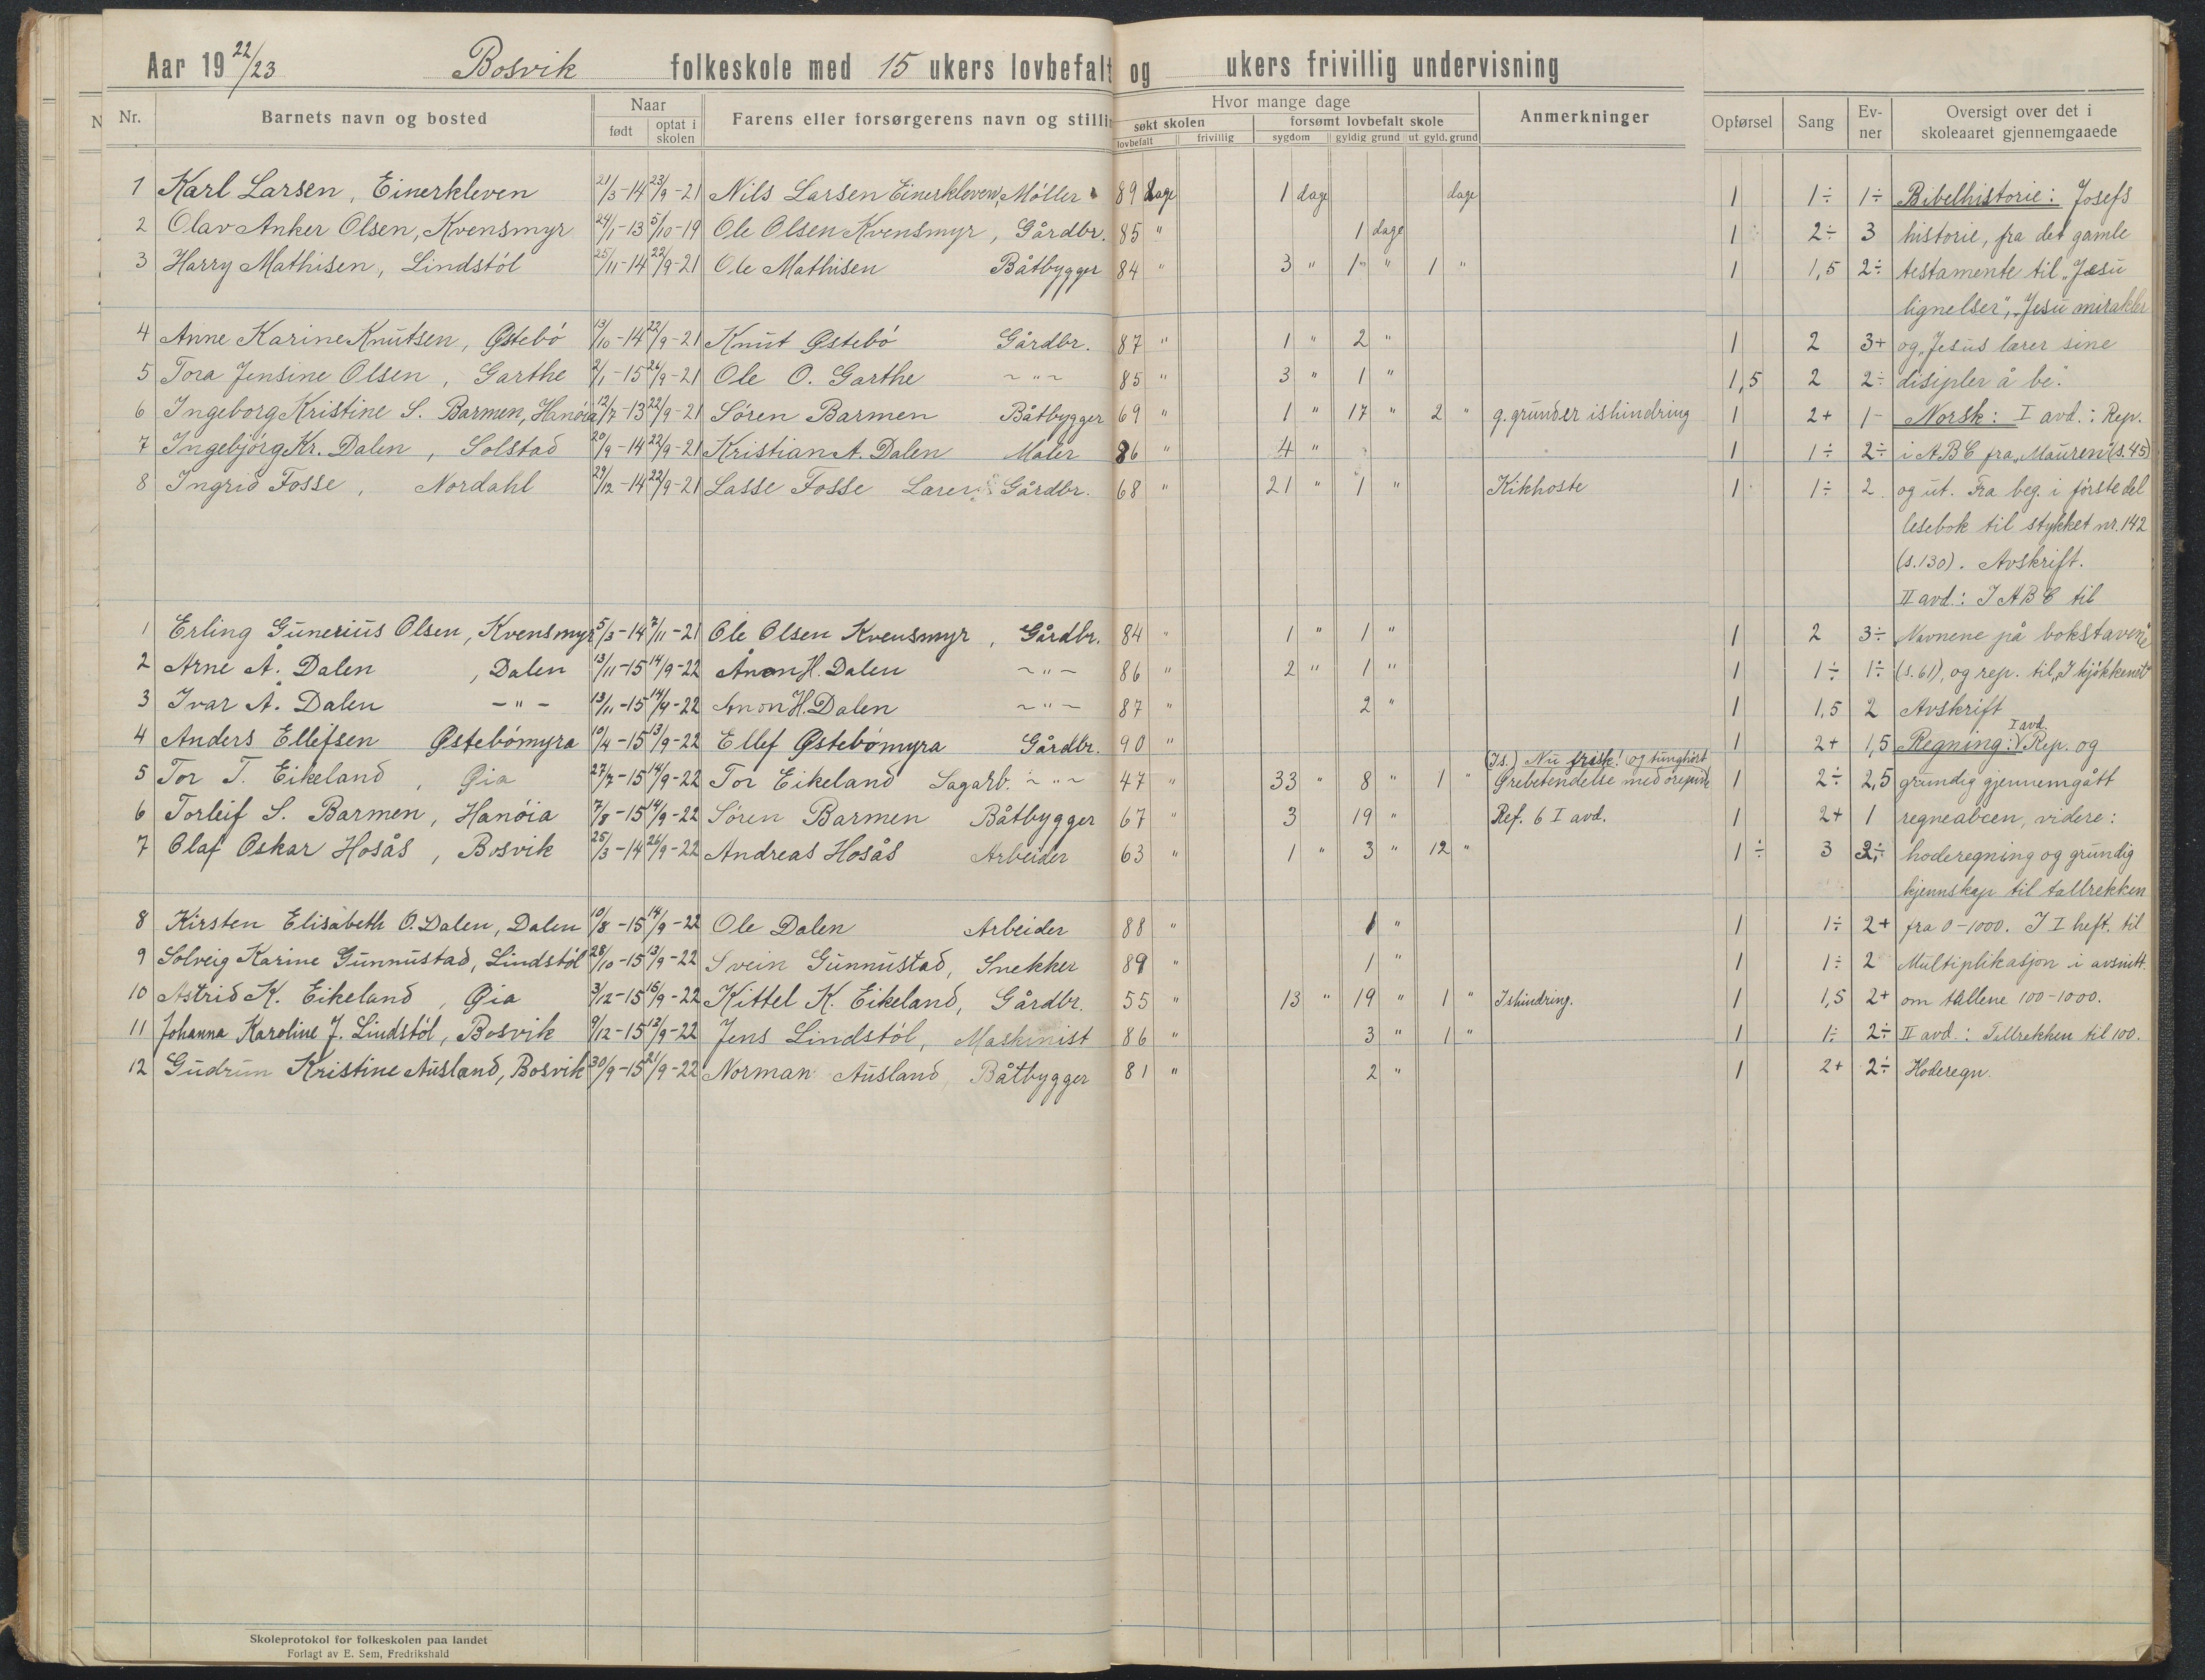 Aar 19 22/23 Bosvik folkeskole med 15 ukers lovbefalt og ukers frivillig undervisning
Nr. Barnets navn og bosted Naar født optat i skolen Farens eller forsørgerens navn og stilling Hvor mange dage søkt skolen lovbefalt frivillig forsømt lovbefalt skole sygdom gyldig grund ut gyld. grund Anmerkninger Opførsel Sang Ev-ner Oversigt over det i skoleaaret gjennemgaaede
1 Karl Larsen, Einerkleven 21/3-14 23/9-21 Nils Larsen Einerkleven, Møller 89 dage 1 dage dage 1 1÷ 1÷ Bibelhistorie: Josefs
2 Olav Anker Olsen, Kvensmyr 24/1-13 5/10-19 Ole Olsen Kvensmyr, Gårdbr. 85 " 1 dage 1 2÷ 3 historie, fra det gamle
3 Harry Mathisen, Lindstöl 25/11-14 22/9-21 Ole Mathisen Båtbygger 84 " 3 " 1 " 1 " 1 1,5 2÷ testamente til "Jesu
lignelser", "Jesu mirakler
4 Anne Karine Knutsen, Østebö 13/10-14 22/9-21 Knut Østebö Gårdbr. 87 " 1 " 2 " 1 2 3+ og "Jesus lærer sine
5 Tora Jensine Olsen, Garthe 2/1-15 26/9-21 Ole O. Garthe ~"~ 85 " 3 " 1 " 1,5 2 2÷ disipler å be."
6 Ingeborg Kristine S. Barmen, Hanöia 12/7-13 22/9-21 Sören Barmen Båtbygger 69 " 1 " 17 " 2 " g. grund er ishindring 1 2+ 1- Norsk: I avd.: Rep.
7 Ingebjörg Kr. Dalen, Solstad 20/9-14 22/9-21 Kristian A. Dalen Maler 86 " 4 " 1 1÷ 2÷ i ABC fra "Mauren" (s. 45)
8 Ingrid Fosse, Nordahl 29/12-14 22/9-21 Lasse Fosse Lærer & Gårdbr. 68 " 21 " 1 " Kikhoste 1 1÷ 2 og ut. Fra beg. i förste del
lesebok til stykket nr. 142
(s. 130). Avskrift.
II avd.: I ABC til
1 Erling Gunerius Olsen, Kvensmyr 5/3-14 7/11-21 Ole Olsen Kvensmyr, Gårdbr. 84 " 1 " 1 " 1 2 3÷ Navnene på bokstavene
2 Arne Å. Dalen, Dalen 13/11-15 14/9-22 Ånon H. Dalen ~"~ 86 " 2 " 1 " 1 1÷ 1÷ (s. 61), og rep. til "I kjökkenet"
3 Ivar Å. Dalen -"- 13/11-15 14/9-22 Ånon H. Dalen ~"~ 87 " 2 " 1 1,5 2 Avskrift
4 Anders Ellefsen Østebömyra 10/4-15 13/9-22 Ellef Østebömyra Gårdbr. 90 " 1 2+ 1,5 Regning: I avd. Rep. og
(Is.) Nu frisk! og tunghört
5 Tor T. Eikeland, Øia 27/7-15 14/9-22 Tor Eikeland Sagarb. ~"~ 47 " 33 " 8 " 1 " Ørebetendelse med 1 2÷ 2,5 grundig gjennemgått
6 Torleif S. Barmen, Hanöia 7/8-15 14/9-22 Sören Barmen Båtbygger 67 " 3 19 " Ref. 6 I avd. 1 2+ 1 regneabceen, videre:
7 Olaf Oskar Hosås, Bosvik 25/3-14 26/9-22 Andreas Hosås Arbeider 63 " 1 " 3 " 12 " 1÷ 3 2÷ hoderegning og grundig
kjennskap til tallrekken
8 Kirsten Elisabeth O. Dalen, Dalen 10/8-15 14/9-22 Ole Dalen Arbeider 88 " 1 " 1 1÷ 2+ fra 0-1000. I I heft. til
9 Solveig Karine Gunnustad, Lindstöl 28/10-15 13/9-22 Svein Gunnustad, Snekker 89 " 1 " 1 1÷ 2 Multiplikasjon i avsnitt.
10 Astrid K. Eikeland, Øia 3/12-15 15/9-22 Kittel K. Eikeland, Gårdbr. 55 " 13 " 19 " 1 " Ishindring. 1 1,5 2+ om tallene 100-1000.
11 Johanna Karoline J. Lindstöl, Bosvik 9/12-15 13/9-22 Jens Lindstöl, Maskinist 86 " 3 " 1 " 1 1÷ 2÷ II avd.: Tallrekken til 100.
12 Gudrun Kristine Ausland, Bosvik 30/9-15 21/9-22 Norman Ausland, Båtbygger 81 " 2 " 1 2+ 2÷ Hoderegn.
Skoleprotokol for folkeskolen paa landet
Forlagt av E. Sem, Fredrikshald